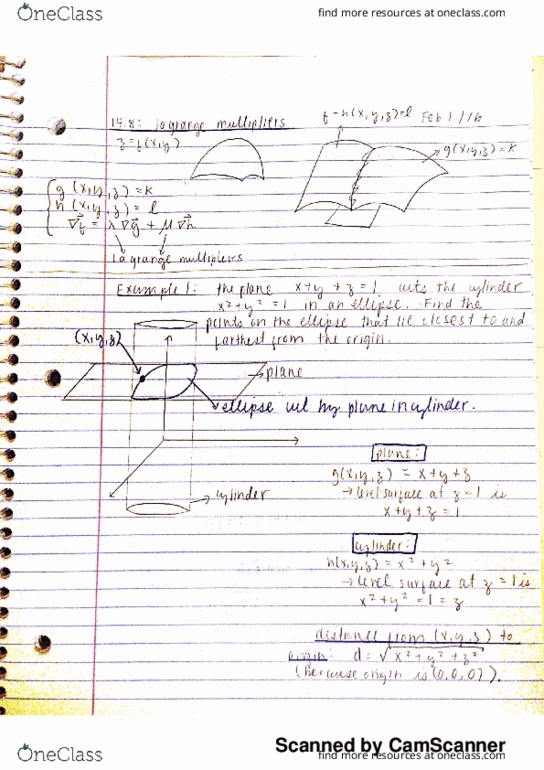 OneClass
find more resources at oneclass.com
14.8: lagrange multipliers
z = f(x,y)
z = h(x,y,z) = l
Feb 1/16
g(x,y,z) = k
g (x,y,z) = k
h (x,y,z) = l
∇f = λ∇g + μ∇h
lagrange multipliers
Example 1: the plane x+y+z=1 cuts the cylinder
x²+y²=1 in an ellipse. Find the
points on the ellipse that lie closest to and
farthest from the origin.
(x,y,z)
→plane
ellipse cut by plane in cylinder.
→cylinder
plane:
g(x,y,z) = x+y+z
→level surface at z=1 is
x+y+z=1
cylinder:
h(x,y,z) = x²+y²
→level surface at z=1 is
x²+y²=1=z
distance from (x,y,z) to
origin: d=√x²+y²+z²
(because origin is (0,0,0)).
Scanned by CamScanner
OneClass
find more resources at oneclass.com